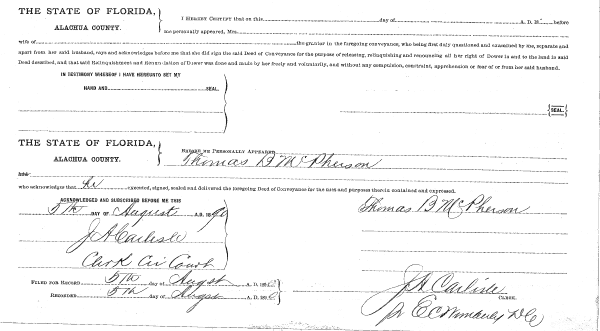 THE STATE OF FLORIDA,
ALACHUA COUNTY.
I HEREBY CERTIFY that on this day of A. D. 18 before
me personally appeared, Mrs.
wife of the grantor in the foregoing conveyance, who being first duly questioned and examined by me, separate and
apart from her said husband, says and acknowledges before me that she did sign the said Deed of Conveyance for the purpose of releasing, relinquishing and renouncing all her right of Dower in and to the land in said
Deed described, and that said Relinquishment and Renunciation of Dower was done and made by her freely and voluntarily, and without any compulsion, constraint, apprehension or fear of or from her said husband.
IN TESTIMONY WHEREOF I HAVE HEREUNTO SET MY
HAND AND SEAL.
SEAL.
THE STATE OF FLORIDA,
ALACHUA COUNTY.
BEFORE ME PERSONALLY APPEARED
Thomas B McPherson
who acknowledges that he executed, signed, sealed and delivered the foregoing Deed of Conveyance for the uses and purposes therein contained and expressed.
ACKNOWLEDGED AND SUBSCRIBED BEFORE ME THIS
5th DAY OF August A. D. 1890
Thomas B McPherson
J A Carlisle
Clerk Cir Court
FILED FOR RECORD 5th day of Augst A. D. 1890
RECORDED 5th day of Augst A. D. 1890
J A Carlisle
CLERK.
DC